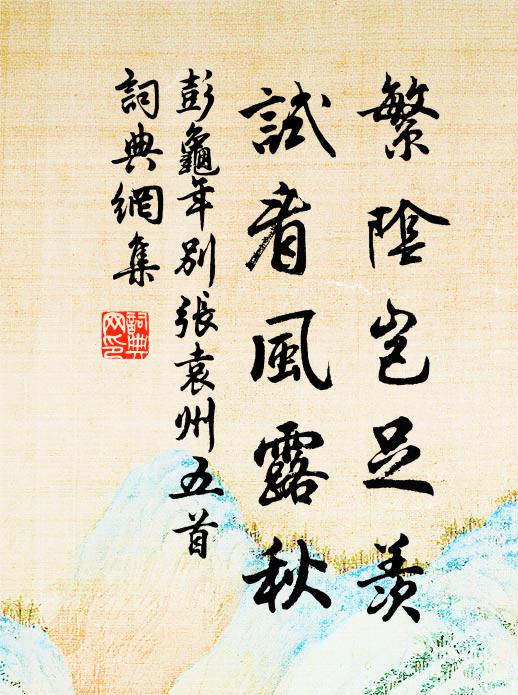 繁陰豈足羨
試看風露秋
彭龜年別張袁州五首
詞典網集
詞典
网印